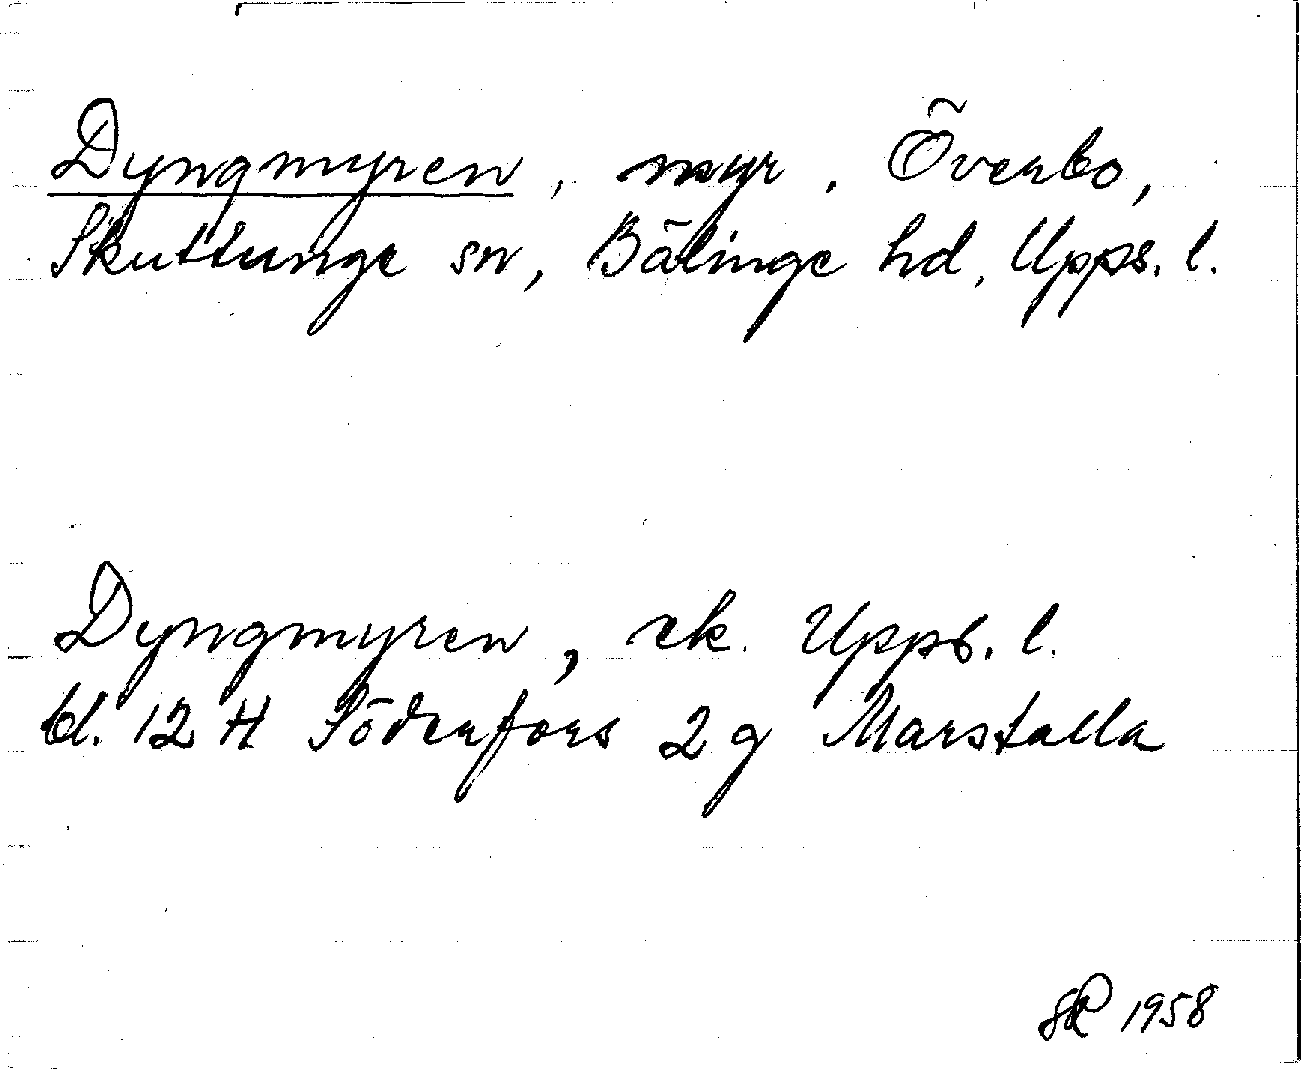 Dyngmyren, myr. Överbo,
Skuttunge sn, Bälinge hd, Upps. l.
Dyngmyren, ek. Upps. l.
bl. 12 H Söderfors 2 g Marstalla
1958